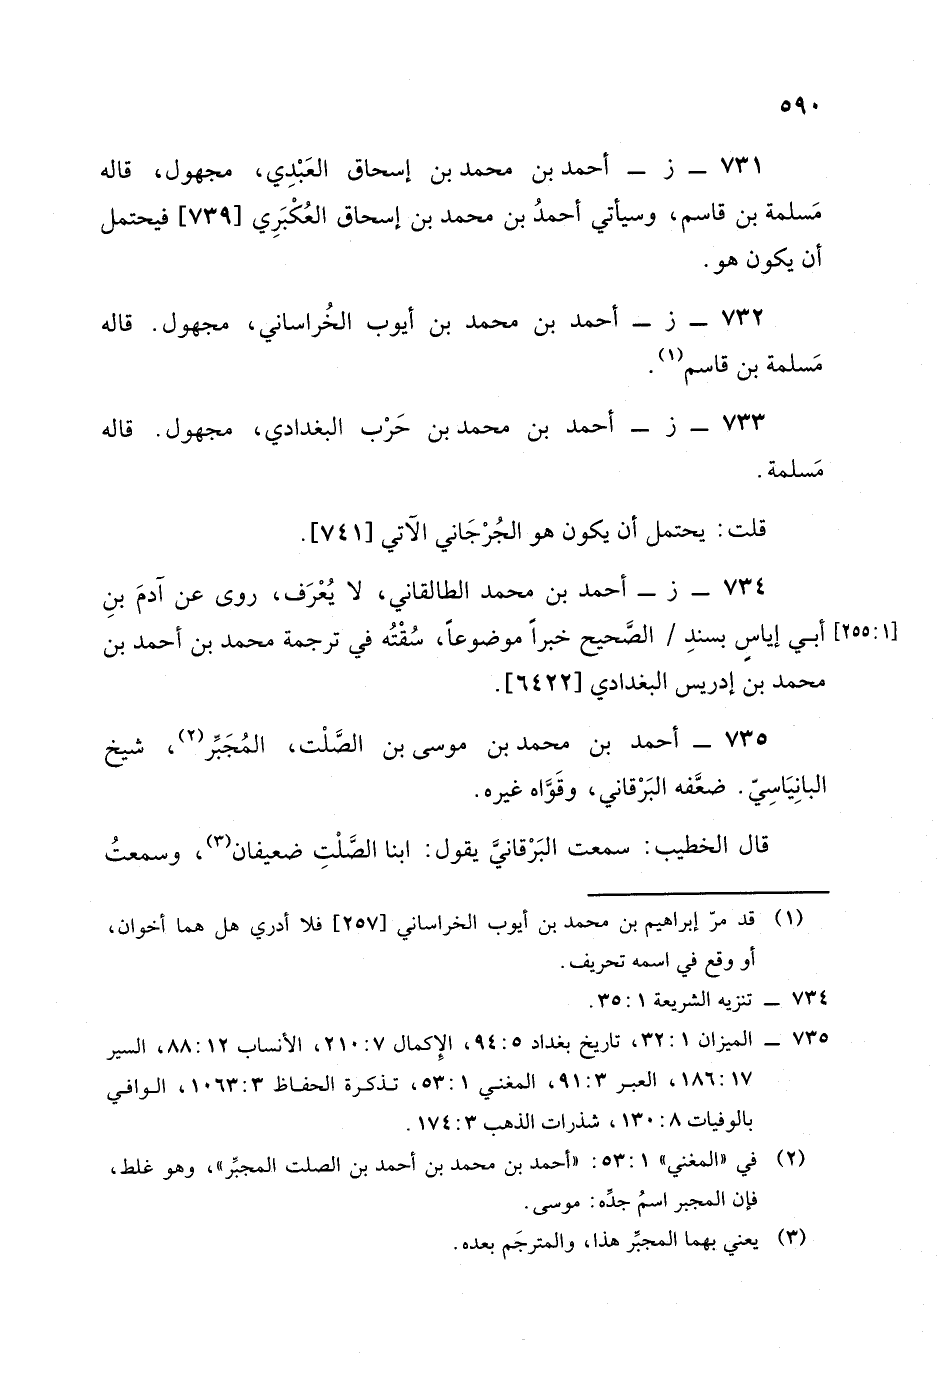 ٥٩٠
٧٣١ ــ ز ــ أحمد بن محمد بن إسحاق العَبْدِي، مجهول، قاله
مَسلمة بن قاسم، وسيأتي أحمدُ بن محمد بن إسحاق العُكْبَرِي [٧٣٩] فيحتمل
أن يكون هو.
٧٣٢ ــ ز ــ أحمد بن محمد بن أيوب الخُراساني، مجهول. قاله
مَسلمة بن قاسم(١).
٧٣٣ ــ ز ــ أحمد بن محمد بن حَرْب البغدادي، مجهول. قاله
مَسلمة.
قلت: يحتمل أن يكون هو الجُرْجَاني الآتي [٧٤١].
٧٣٤ ــ ز ــ أحمد بن محمد الطالقاني، لا يُعْرَف، روى عن آدمَ بنِ
[٢٥٥:١] أبـي إياسٍ بسندِ / الصَّحيح خبراً موضوعاً، سُقْتُه في ترجمة محمد بن أحمد بن
محمد بن إدريس البغدادي [٦٤٢٢].
٧٣٥ ــ أحمد بن محمد بن موسى بن الصَّلْت، المُجَبِّر(٢)، شيخ
البانِيَاسِيّ. ضعَّفه البَرْقاني، وقَوَّاه غيره.
قال الخطيب: سمعت البَرْقانيَّ يقول: ابنا الصَّلْتِ ضعيفان(٣)، وسمعتُ
(١) قد مرّ إبراهيم بن محمد بن أيوب الخراساني [٢٥٧] فلا أدري هل هما أخوان،
أو وقع في اسمه تحريف.
٧٣٤ ــ تنزيه الشريعة ١:٣٥.
٧٣٥ ــ الميزان ١:٣٢، تاريخ بغداد ٥:٩٤، الإكمال ٧:٢١٠، الأنساب ١٢:٨٨، السير
١٧:١٨٦، العبر ٣:٩١، المغني ١:٥٣، تذكرة الحفاظ ٣:١٠٦٣، الوافي
بالوفيات ٨:١٣٠، شذرات الذهب ٣:١٧٤.
(٢) في «المغني» ١:٥٣: «أحمد بن محمد بن أحمد بن الصلت المجبِّر»، وهو غلط،
فإن المجبر اسمُ جدِّه: موسى.
(٣) يعني بهما المجبِّر هذا، والمترجَم بعده.